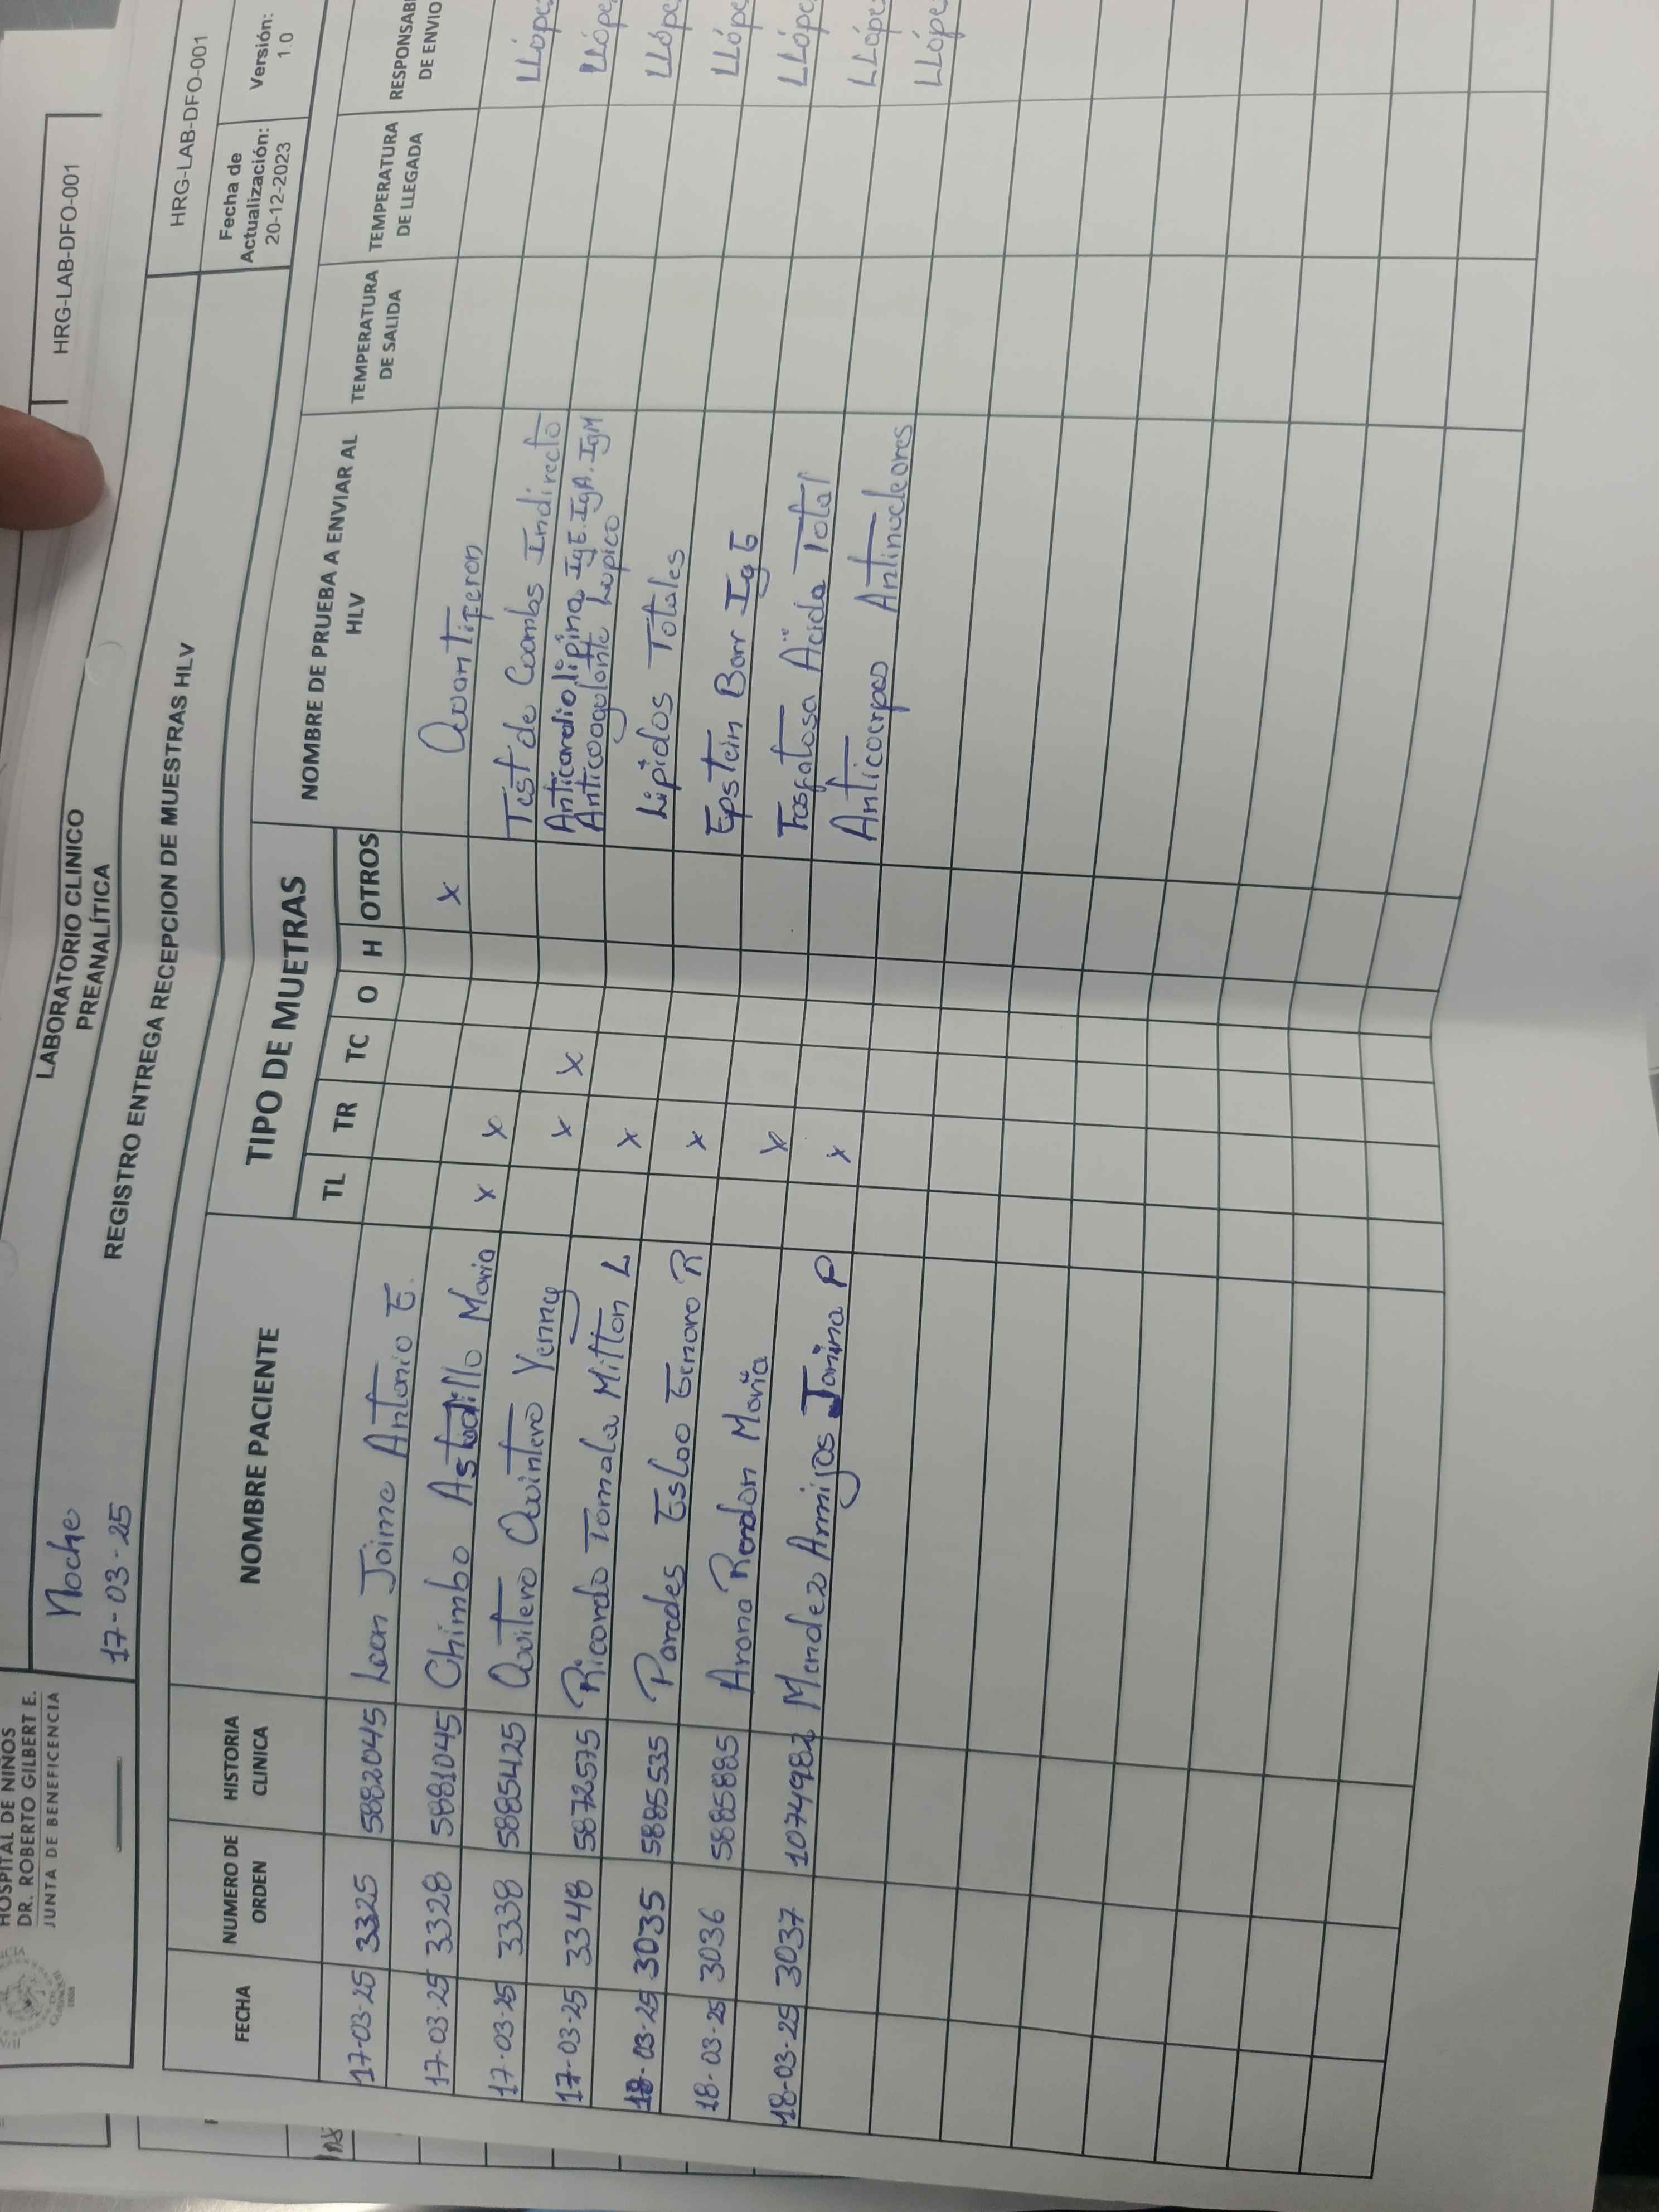 HRG-LAB-DFO-001
HOSPITAL DE NIÑOS
DR. ROBERTO GILBERT E.
JUNTA DE BENEFICENCIA
LABORATORIO CLINICO
PREANALÍTICA
HRG-LAB-DFO-001
Noche
17-03-25
REGISTRO ENTREGA RECEPCION DE MUESTRAS HLV
Fecha de Actualización: 20-12-2023
Versión: 1.0
FECHA NUMERO DE ORDEN HISTORIA CLINICA NOMBRE PACIENTE TIPO DE MUETRAS NOMBRE DE PRUEBA A ENVIAR AL HLV TEMPERATURA DE SALIDA TEMPERATURA DE LLEGADA DE ENVIO
TL TR TC O H OTROS
17-03-25 3325 5882045 Leon Jaime Antonio E. x Quantiferon LLópe
17-03-25 3328 5881045 Chimbo Astudillo Maria x x Test de Coombs Indirecto LLópe
17-03-25 3338 5885425 Quitero Quintero Yenny x x Anticardiolipina IgE. IgA. IgM LLópe
Anticoagulante Lupico
17-03-25 3348 5872575 Ricardo Tomala Milton L x Lipidos Totales LLópe
18-03-25 3035 5885535 Paredes Genaro R x Epstein Barr Ig G LLópe
18-03-25 3036 5885885 Arana Rendon María x Fosfatasa Ácida Total LLópe
18-03-25 3037 1074982 Mendez Armijos P x Anticuerpos Antinucleares LLópe